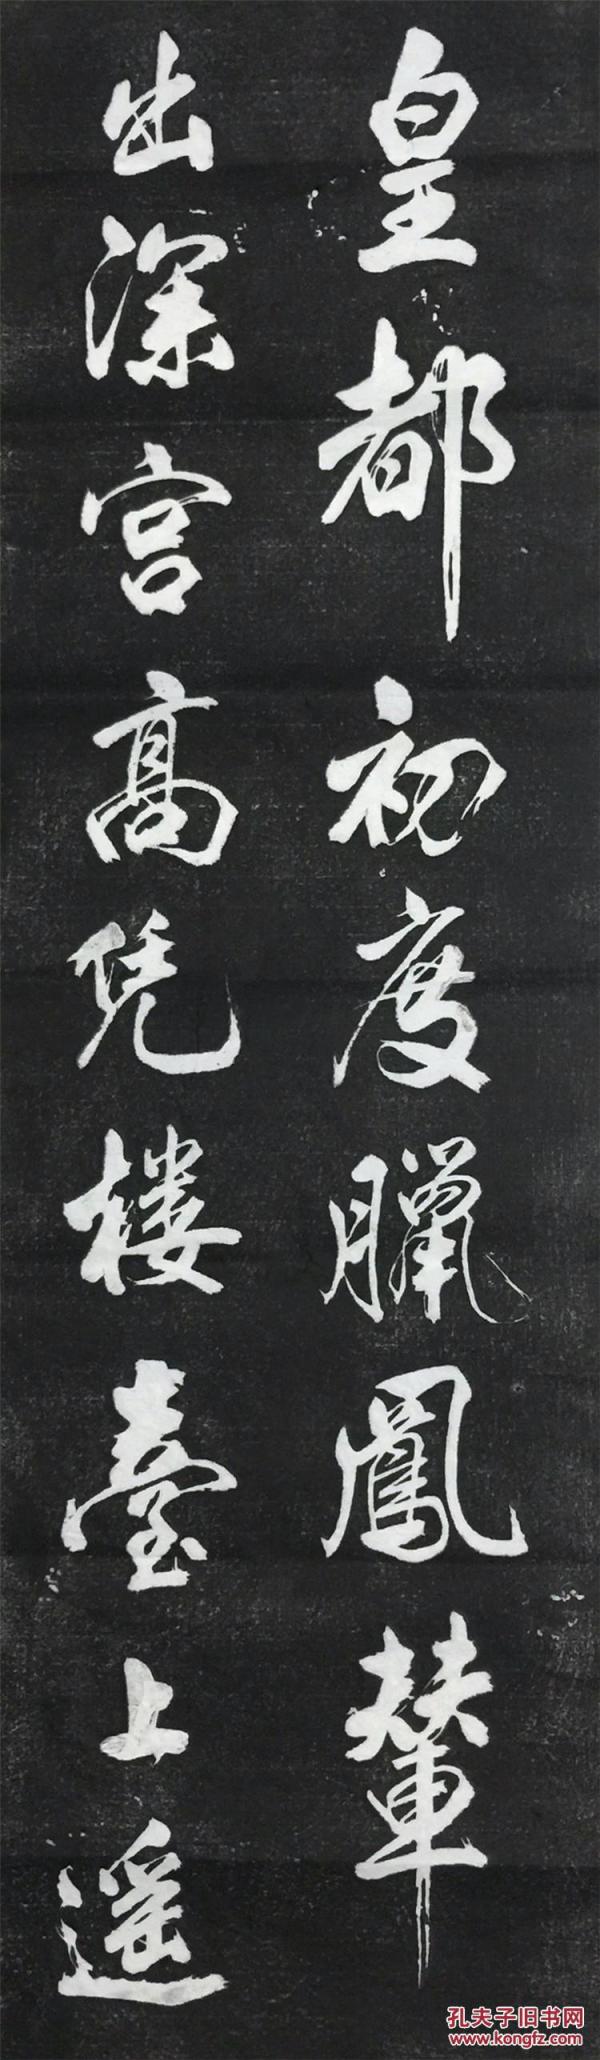 皇都初度臘鳳輦
出深宫髙凭楼臺上遥
孔夫子旧书网
www.kongfz.com